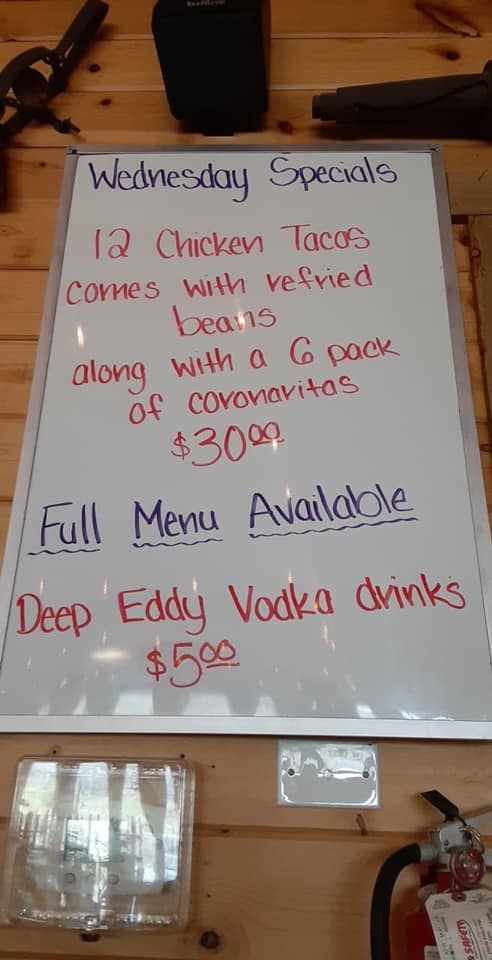 Wednesday Specials
12 Chicken Tacos
comes with refried
beans
along with a 6 pack
of coronaritas
$30.00
Full Menu Available
Deep Eddy Vodka drinks
$5.00
SAFETY